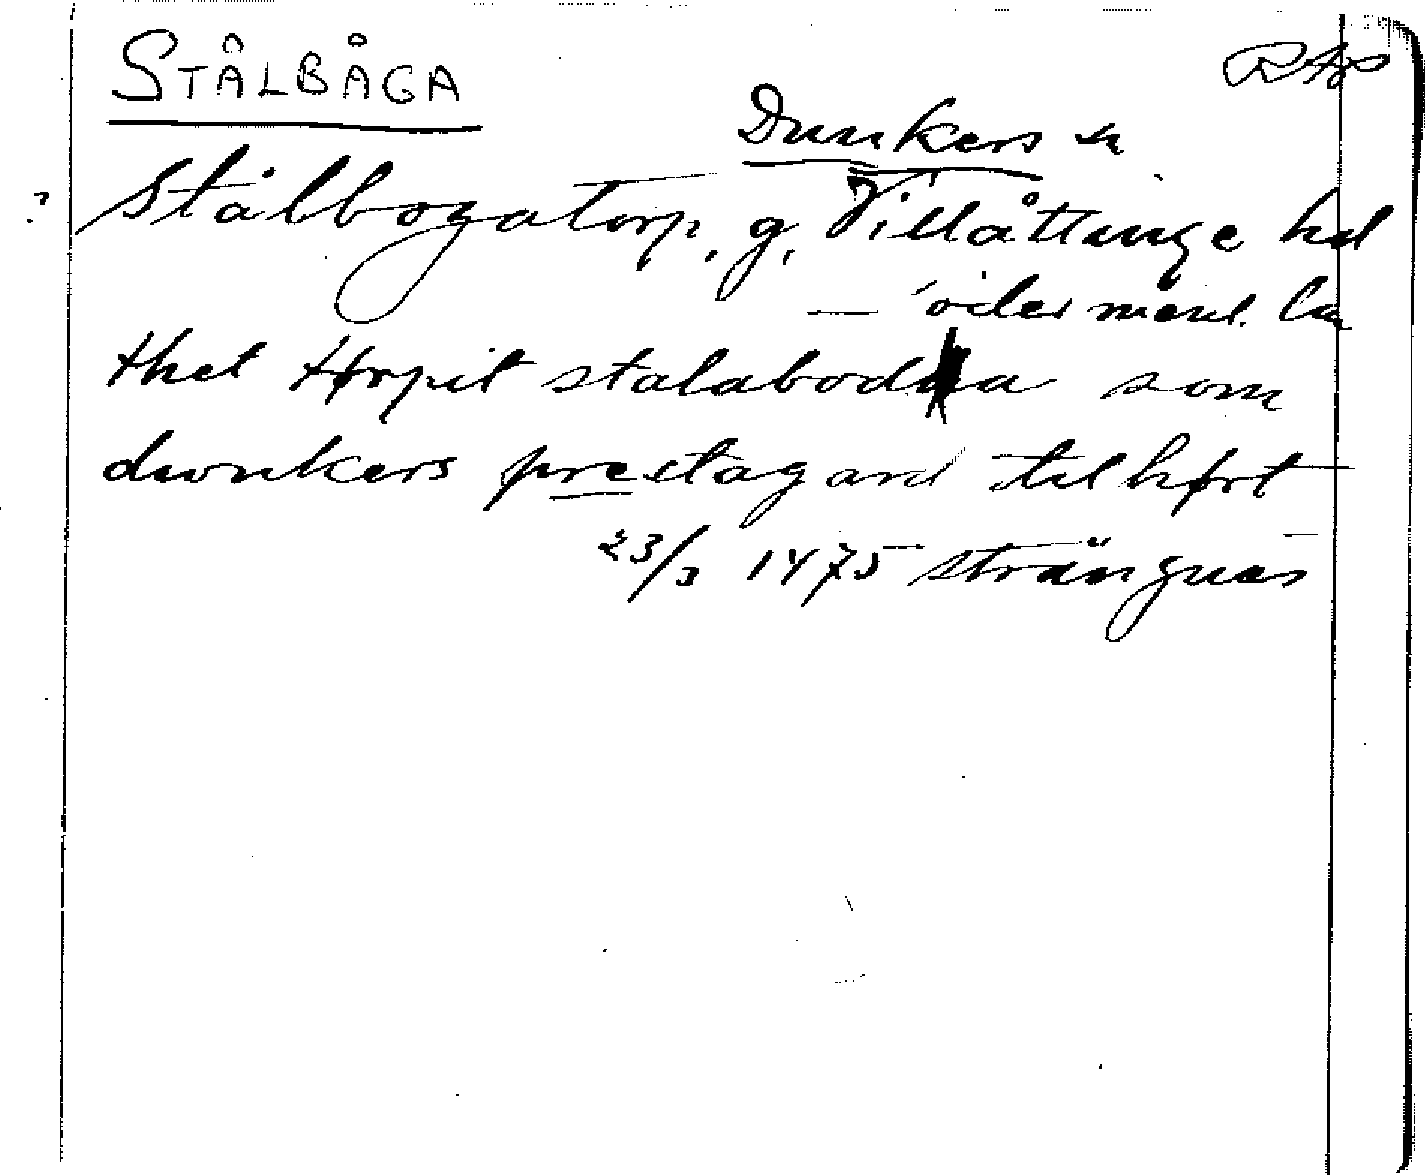 STÅLBÅGA
RAp
Dunkers sn
? Stålbogatorp, g, Villåttinge hd
Södermanl. län
thet thorpit stalaboda som
dwnkers prestagard tilhört
23/3 1475 Strängnäs